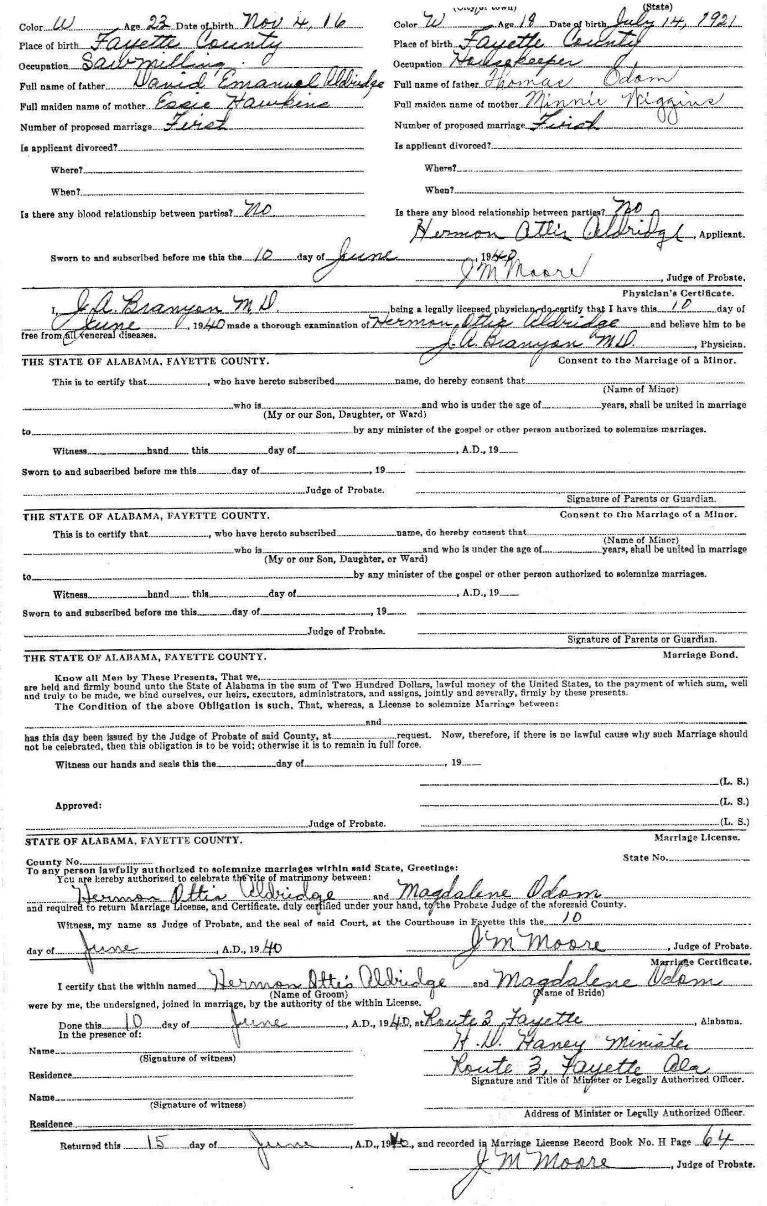 (City or town) (State)
Color W Age 23 Date of birth Nov 4, 16 Color W Age 18 Date of birth July 14, 1921
Place of birth Fayette County Place of birth Fayette County
Occupation Sawmilling Occupation Housekeeper
Full name of father David Emanuel Aldridge Full name of father Thomas Odom
Full maiden name of mother Essie Hawkins Full maiden name of mother Minnie Wiggins
Number of proposed marriage First Number of proposed marriage First
Is applicant divorced? Is applicant divorced?
Where? Where?
When? When?
Is there any blood relationship between parties? No Is there any blood relationship between parties? No
Hermon Ottis Aldridge, Applicant.
Sworn to and subscribed before me this the 10 day of June, 1940
J M Moore, Judge of Probate.
Physician's Certificate.
I, J.A. Branyon M.D. being a legally licensed physician, do certify that I have this 10 day of
June, 1940 made a thorough examination of Hermon Ottis Aldridge and believe him to be
free from all venereal diseases. J.A. Branyon M.D., Physician.
THE STATE OF ALABAMA, FAYETTE COUNTY. Consent to the Marriage of a Minor.
This is to certify that, who have hereto subscribed name, do hereby consent that
(Name of Minor)
who is and who is under the age of years, shall be united in marriage
(My or our Son, Daughter, or Ward)
to by any minister of the gospel or other person authorized to solemnize marriages.
Witness hand this day of, A.D., 19
Sworn to and subscribed before me this day of, 19
Judge of Probate.
Signature of Parents or Guardian.
THE STATE OF ALABAMA, FAYETTE COUNTY. Consent to the Marriage of a Minor.
This is to certify that, who have hereto subscribed name, do hereby consent that
(Name of Minor)
who is and who is under the age of years, shall be united in marriage
(My or our Son, Daughter, or Ward)
to by any minister of the gospel or other person authorized to solemnize marriages.
Witness hand this day of, A.D., 19
Sworn to and subscribed before me this day of, 19
Judge of Probate.
Signature of Parents or Guardian.
THE STATE OF ALABAMA, FAYETTE COUNTY. Marriage Bond.
Know all Men by These Presents, That we,
are held and firmly bound unto the State of Alabama in the sum of Two Hundred Dollars, lawful money of the United States, to the payment of which sum, well
and truly to be made, we bind ourselves, our heirs, executors, administrators, and assigns, jointly and severally, firmly by these presents.
The Condition of the above Obligation is such, That, whereas, a License to solemnize Marriage between:
and
has this day been issued by the Judge of Probate of said County, at request. Now, therefore, if there is no lawful cause why such Marriage should
not be celebrated, then this obligation is to be void; otherwise it is to remain in full force.
Witness our hands and seals this the day of, 19
(L. S.)
Approved: (L. S.)
Judge of Probate. (L. S.)
STATE OF ALABAMA, FAYETTE COUNTY. Marriage License.
County No. State No.
To any person lawfully authorized to solemnize marriages within said State, Greetings:
You are hereby authorized to celebrate the rite of matrimony between:
Hermon Ottis Aldridge and Magdalene Odom
and required to return Marriage License, and Certificate, duly certified under your hand, to the Probate Judge of the aforesaid County.
Witness, my name as Judge of Probate, and the seal of said Court, at the Courthouse in Fayette this the 10
day of June, A.D., 1940 J M Moore, Judge of Probate.
Marriage Certificate.
I certify that the within named Hermon Ottis Aldridge and Magdalene Odom
(Name of Groom) (Name of Bride)
were by me, the undersigned, joined in marriage, by the authority of the within License.
Done this 10 day of June, A.D., 1940, at Route 3 Fayette, Alabama.
In the presence of: H.D. Haney Minister
Name
(Signature of witness) Route 3, Fayette Ala
Residence Signature and Title of Minister or Legally Authorized Officer.
Name
(Signature of witness)
Residence Address of Minister or Legally Authorized Officer.
Returned this 15 day of June, A.D., 1940, and recorded in Marriage License Record Book No. H Page 64
J M Moore, Judge of Probate.